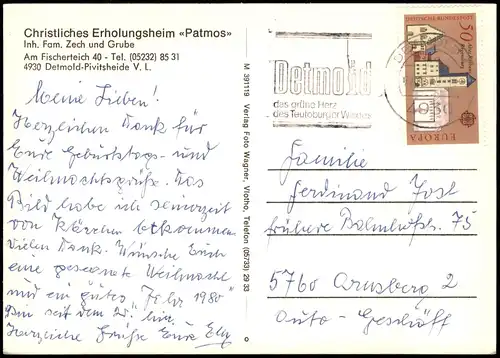 Christliches Erholungsheim «Patmos»
Inh. Fam. Zech und Grube
Am Fischerteich 40 - Tel. (05232) 85 31
4930 Detmold-Pivitsheide V. L.
Meine Lieben!
Herzlichen Dank für
Eure Geburtstags- und
Weihnachtsgrüße. Das
Bild habe ich seinerzeit
von Kärchen bekommen
vielen Dank. Wünsche Euch
eine gesegnete Weihnacht
und ein gutes "Jahr 1980"
Bin seit dem 20. hier.
Herzliche Grüße Eure Elly
M 391119 Verlag Foto Wagner, Vlotho, Telefon (05733) 29 33
Detmold
das grüne Herz
des Teutoburger Waldes
4930
DEUTSCHE BUNDESPOST
50
EUROPA
Familie
Ferdinand Jost
frühere Bahnhofstr. 75
5760 Arnsberg 2
Auto-Geschäft